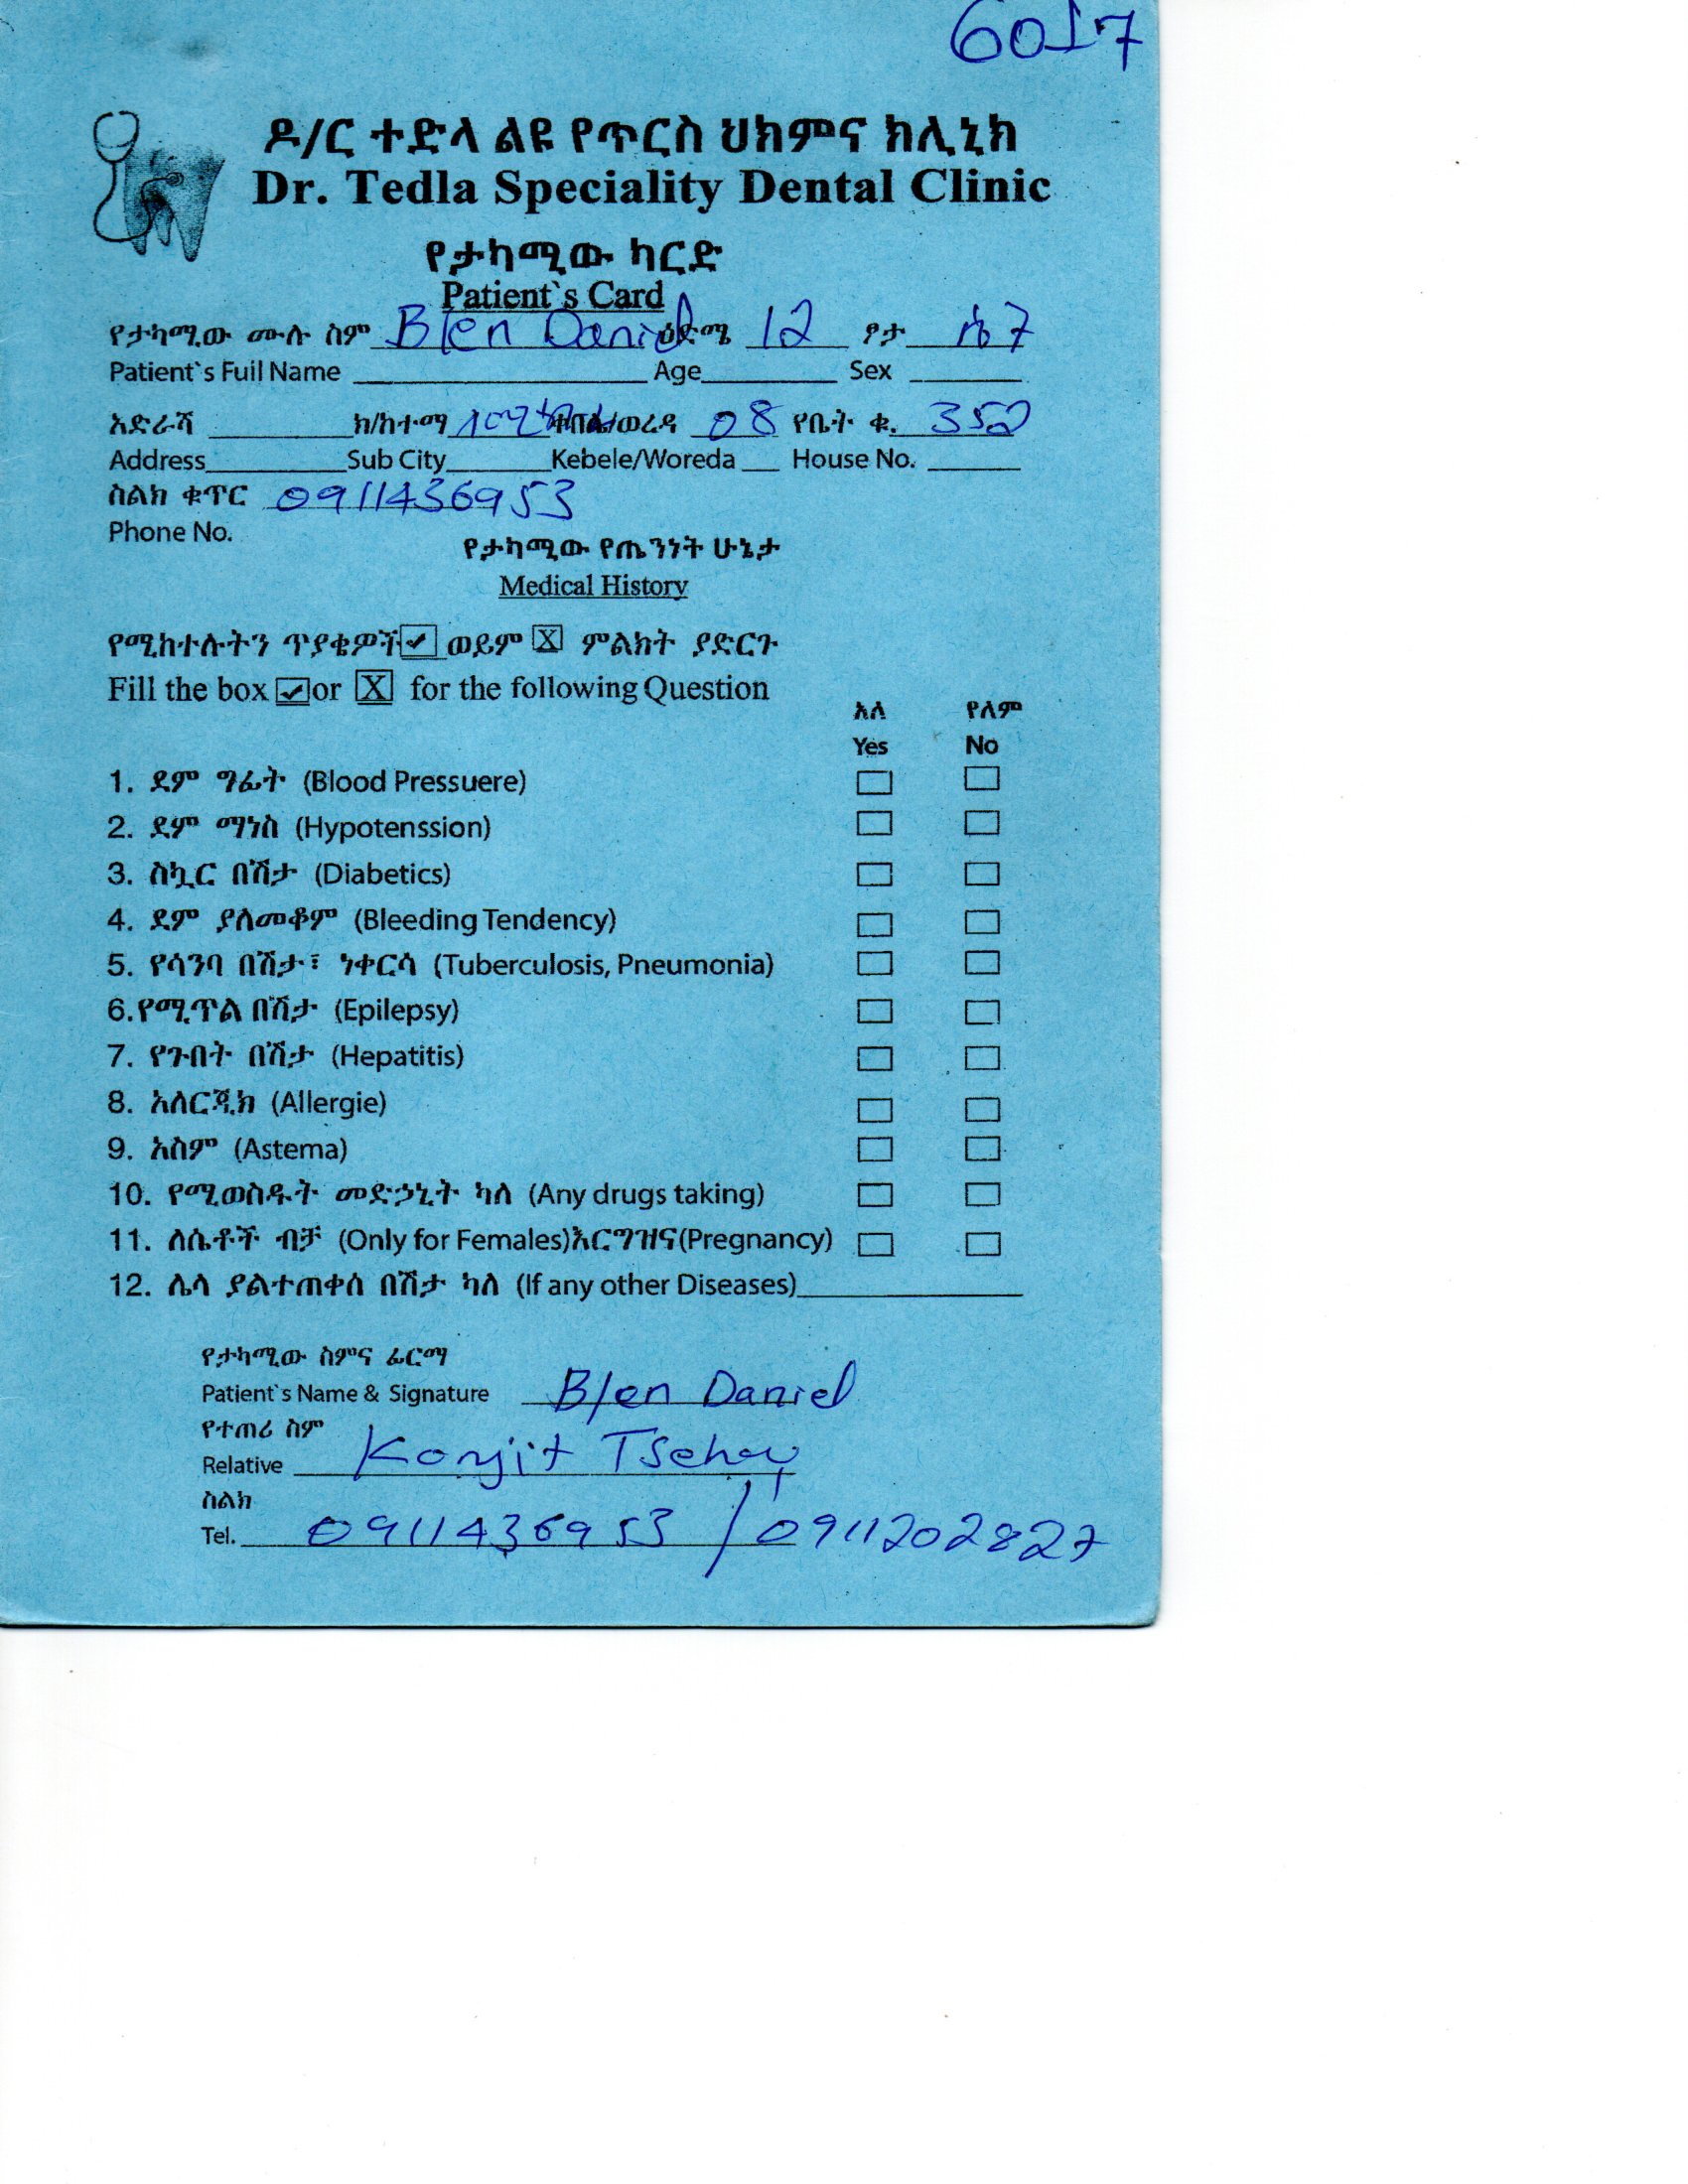 6017
ዶ/ር ተድላ ልዩ የጥርስ ህክምና ክሊኒክ
Dr. Tedla Speciality Dental Clinic
የታካሚው ካርድ
Patient`s Card
የታካሚው ሙሉ ስም Blen Daniel ዕድሜ 12 ፆታ ሴት
Patient`s Fuil Name Age Sex
አድራሻ ክ/ከተማ ቀበሌ/ወረዳ 08 የቤት ቁ. 352
Address Sub City Kebele/Woreda House No.
ስልክ ቁጥር 0911436953
Phone No.
የታካሚው የጤንነት ሁኔታ
Medical History
የሚከተሉትን ጥያቄዎች ✓ ወይም X ምልክት ያድርጉ
Fill the box ✓ or X for the following Question
አለ የለም
Yes No
1. ደም ግፊት (Blood Pressuere)
2. ደም ማነስ (Hypotenssion)
3. ስኳር በሽታ (Diabetics)
4. ደም ያለመቆም (Bleeding Tendency)
5. የሳንባ በሽታ፣ ነቀርሳ (Tuberculosis, Pneumonia)
6.የሚጥል በሽታ (Epilepsy)
7. የጉበት በሽታ (Hepatitis)
8. አለርጂክ (Allergie)
9. አስም (Astema)
10. የሚወስዱት መድኃኒት ካለ (Any drugs taking)
11. ለሴቶች ብቻ (Only for Females)እርግዝና(Pregnancy)
12. ሌላ ያልተጠቀሰ በሽታ ካለ (If any other Diseases)
የታካሚው ስምና ፊርማ
Patient`s Name & Signature Blen Daniel
የተጠሪ ስም
Relative Konjit Tsehay
ስልክ
Tel. 0911436953 / 0911202827